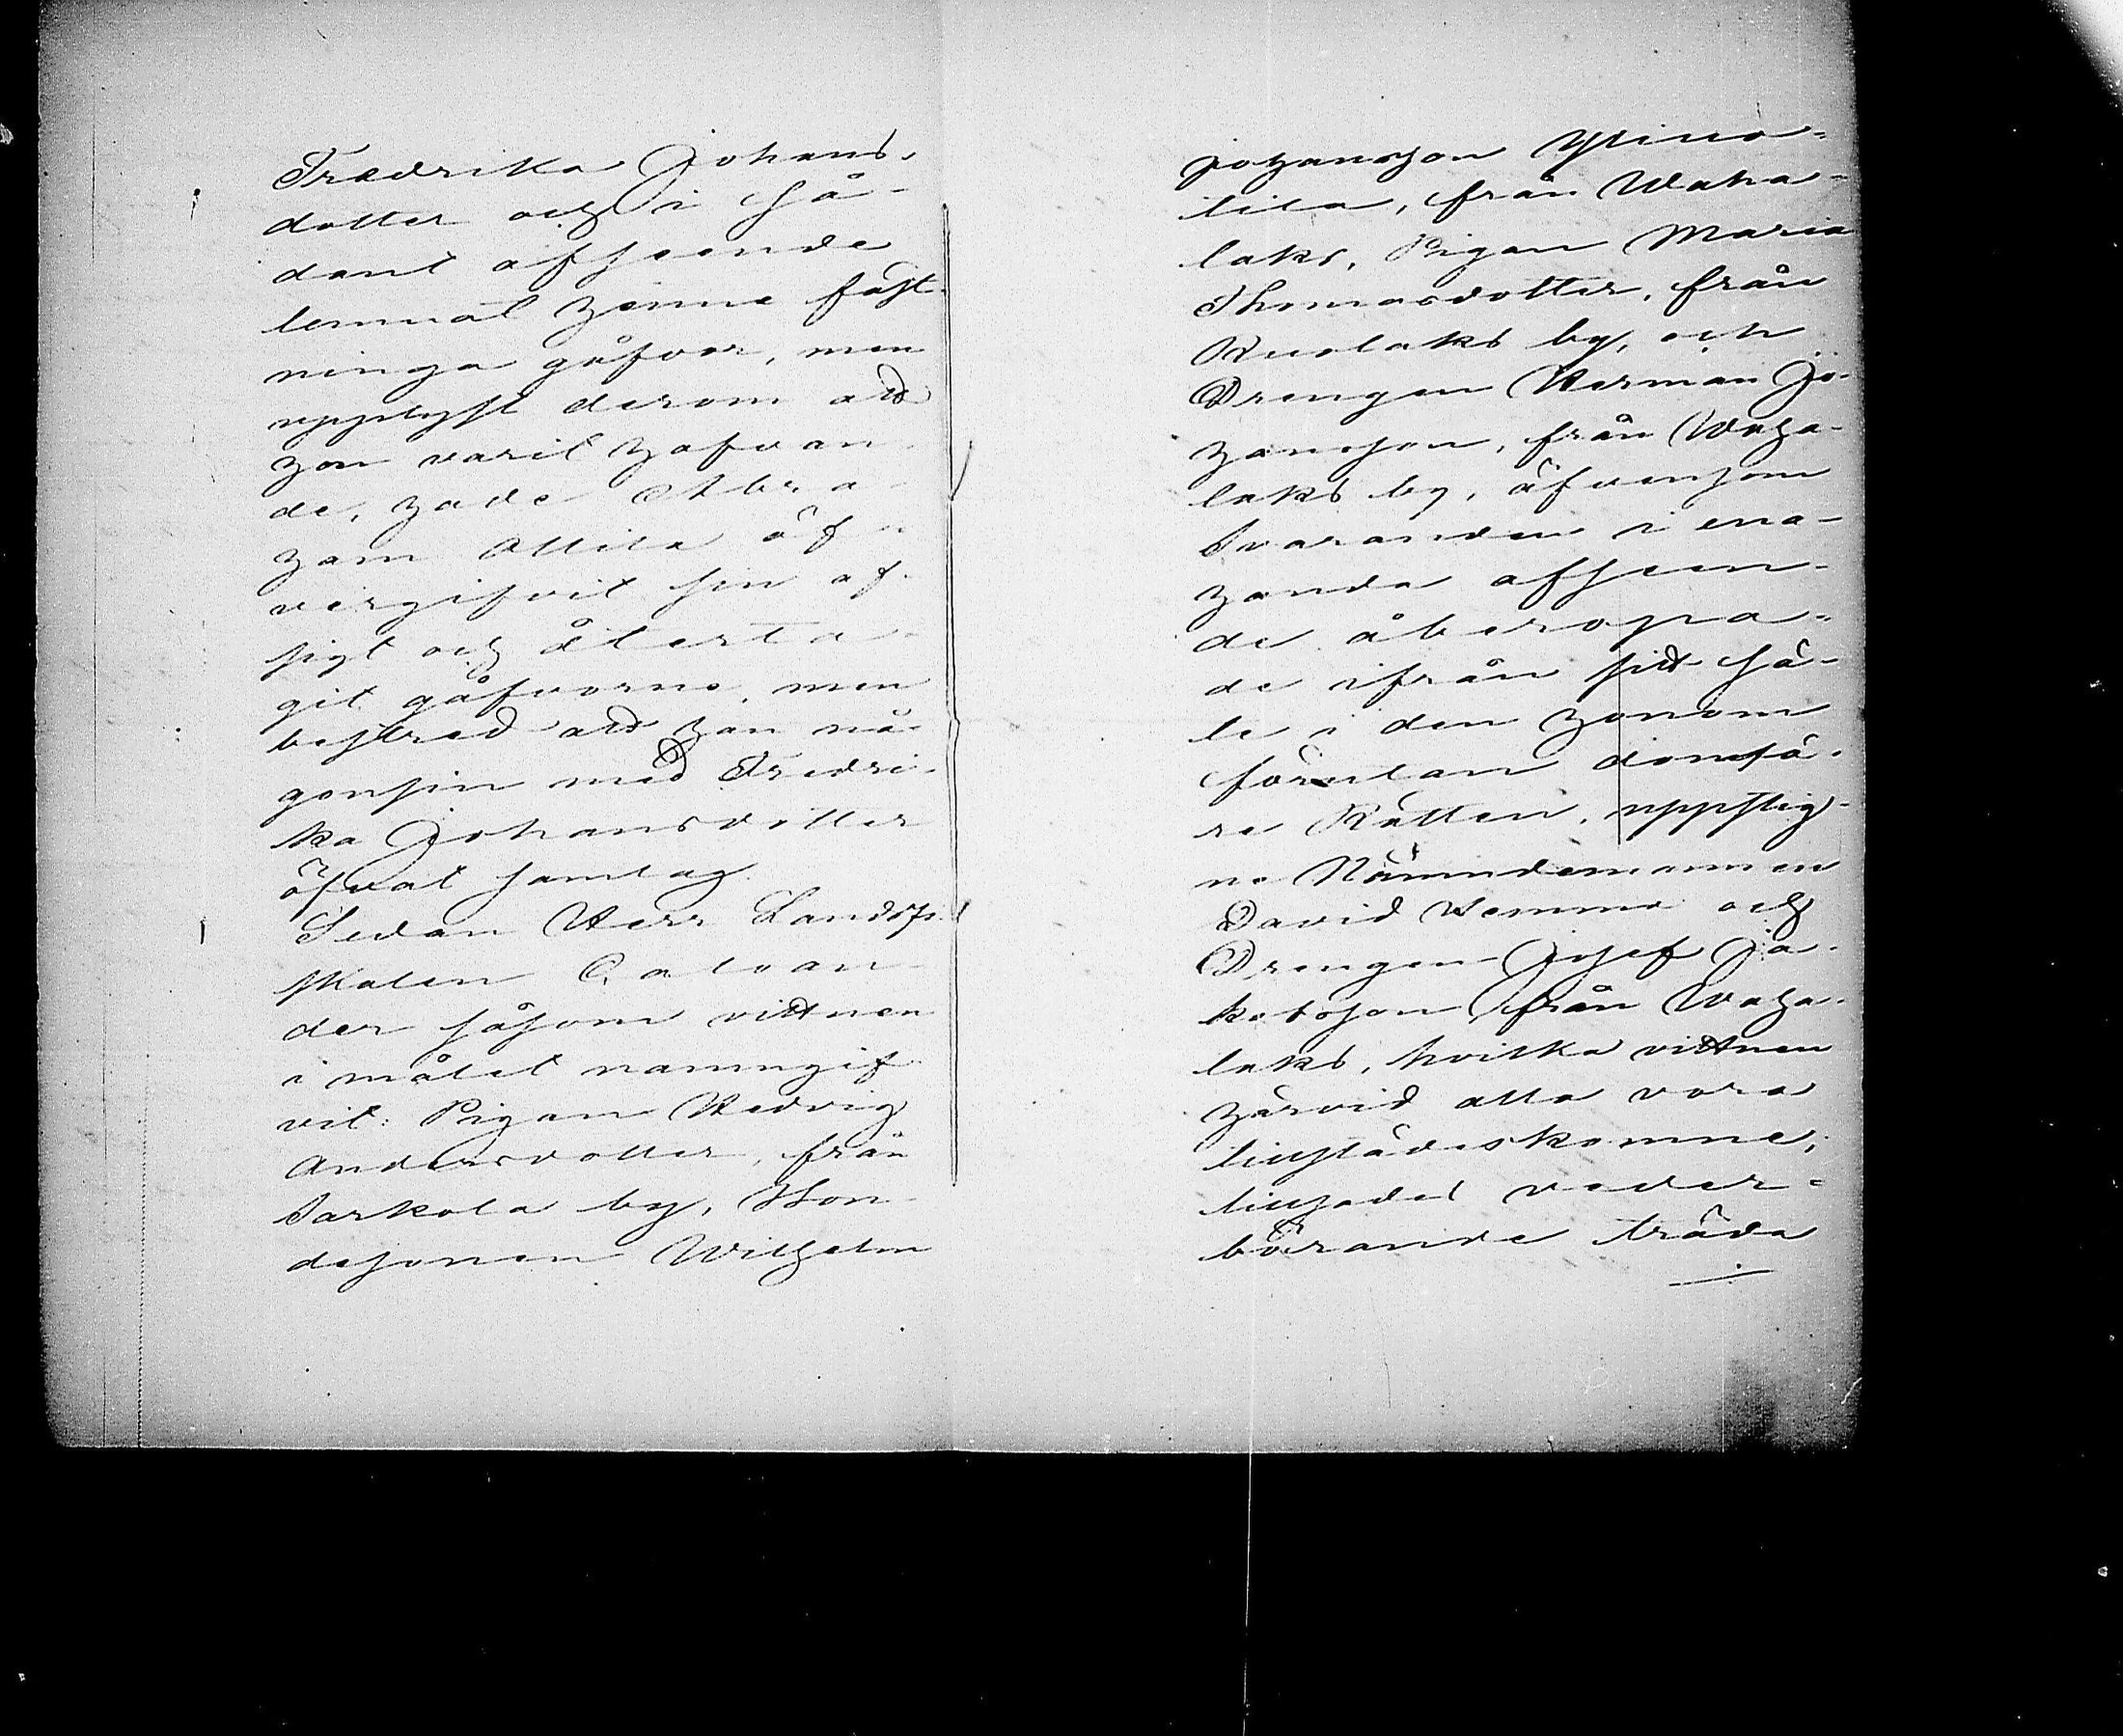 Fredrika Johans-
dotter och i så-
dant afseende
lemnat henne fäst-
ninga gåfvor, men
upplyst derom att
hon varit hafvan
de, hade Abra-
ham Ollila öf-
vergifvit sin af-
sigt och återta-
git gåfvorne, men
bestred att han nå-
gonsin med Fredri-
ka Johansdotter
öfvat samlag.
Sedan Herr Landsfi-
skalen Calvan
der såsom vittnen
i målet namngif
vit: Pigan Hedvig
Andersdotter, från
Sarkola by, Bon
desonen Wilhelm
Johansson Ylino-
lila, från Waha-
laks, Pigan Maria
Thomasdotter, från
Kuolaks by, och
Drengen Herman Jo-
hansson, från Waha-
laks by, äfvensom
Svaranden i ena-
handa afseen-
de åberopa-
de ifrån sitt hå-
le i den honom
förutan domfö-
re Rätten, uppstig-
ne Nämndemannen
David Hemmo och
Drengen Josef Ja-
kobsson från Waha-
laks, hvilka vittnen
härvid alla voro
tillstädeskomne,
tillsades veder-
börande träda